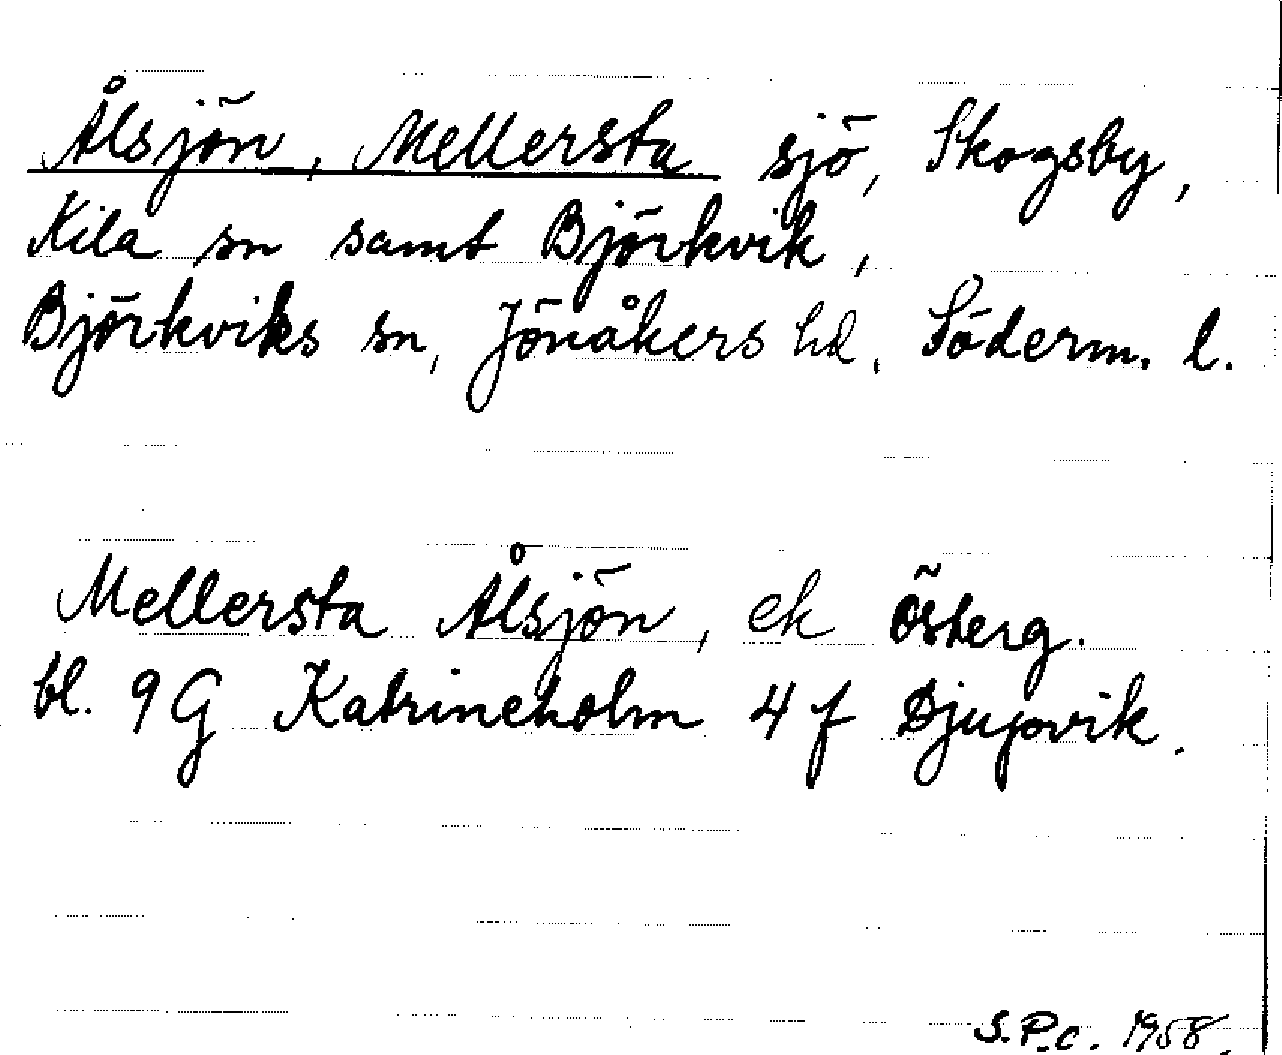 Ålsjön, Mellersta sjö, Skogsby,
Kila sn samt Björkvik,
Björkviks sn, Jönåkers hd, Söderm. l.
Mellersta Ålsjön, ek Österg.
bl. 9 G Katrineholm 4 f Djupvik.
S.P.c. 1958.